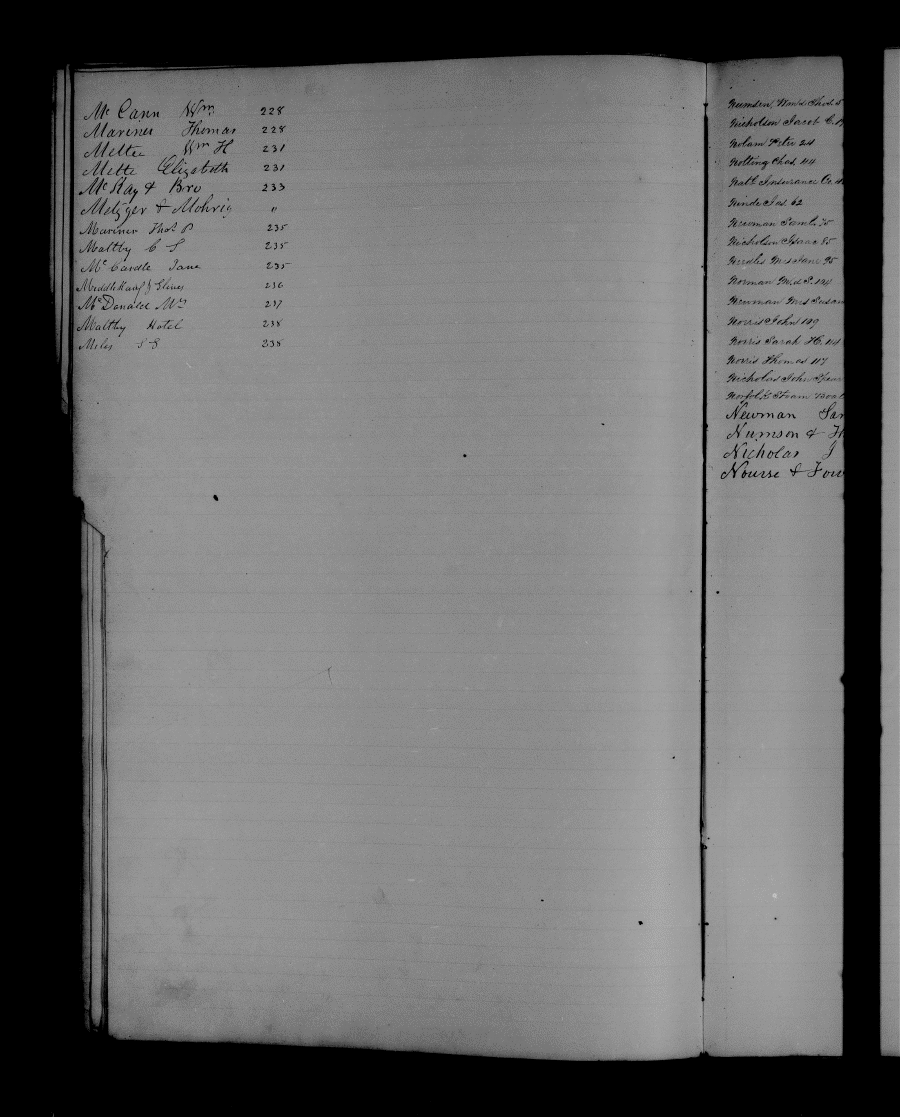 Mc Cann Wm 228
Mariner Thomas 228
Mettee Wm H 231
Mette Elizabeth 231
McKay & Bro 233
Metzger & Mohrig "
Mariner Thos P 235
Maltby C S 235
Mc Cardle Jane 235
236
McDonald Wm 237
Maltby Hotel 238
Miles S S 238
Numsen, Wm & Thos. 5
Nicholson Jacob C.
Nolam Peter 24
Nolting Chas. 44
Natl Insurance Co.
Ninde Jas. 62
Newman Saml. 75
Nicholson Isaac 85
Needles Mrs Jane 95
Norman
Newman Mrs Susan
Norris John 109
Norris Sarah H. 114
Norris Thomas 117
Nicholas John Spear
Norfolk Steam
Newman Sar
Numson &
Nicholas J
Nourse & Fow